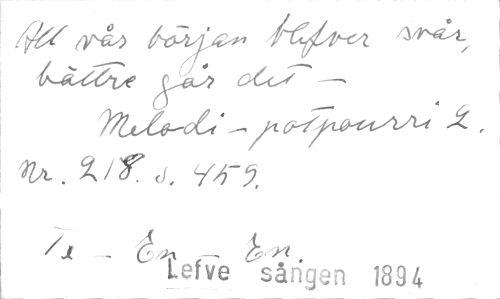 All vår början blefver svår,
bättre går det —
Melodi - potpourri 2.
Nr. 218. s. 459.
Te - En - En.
Lefve sången 1894